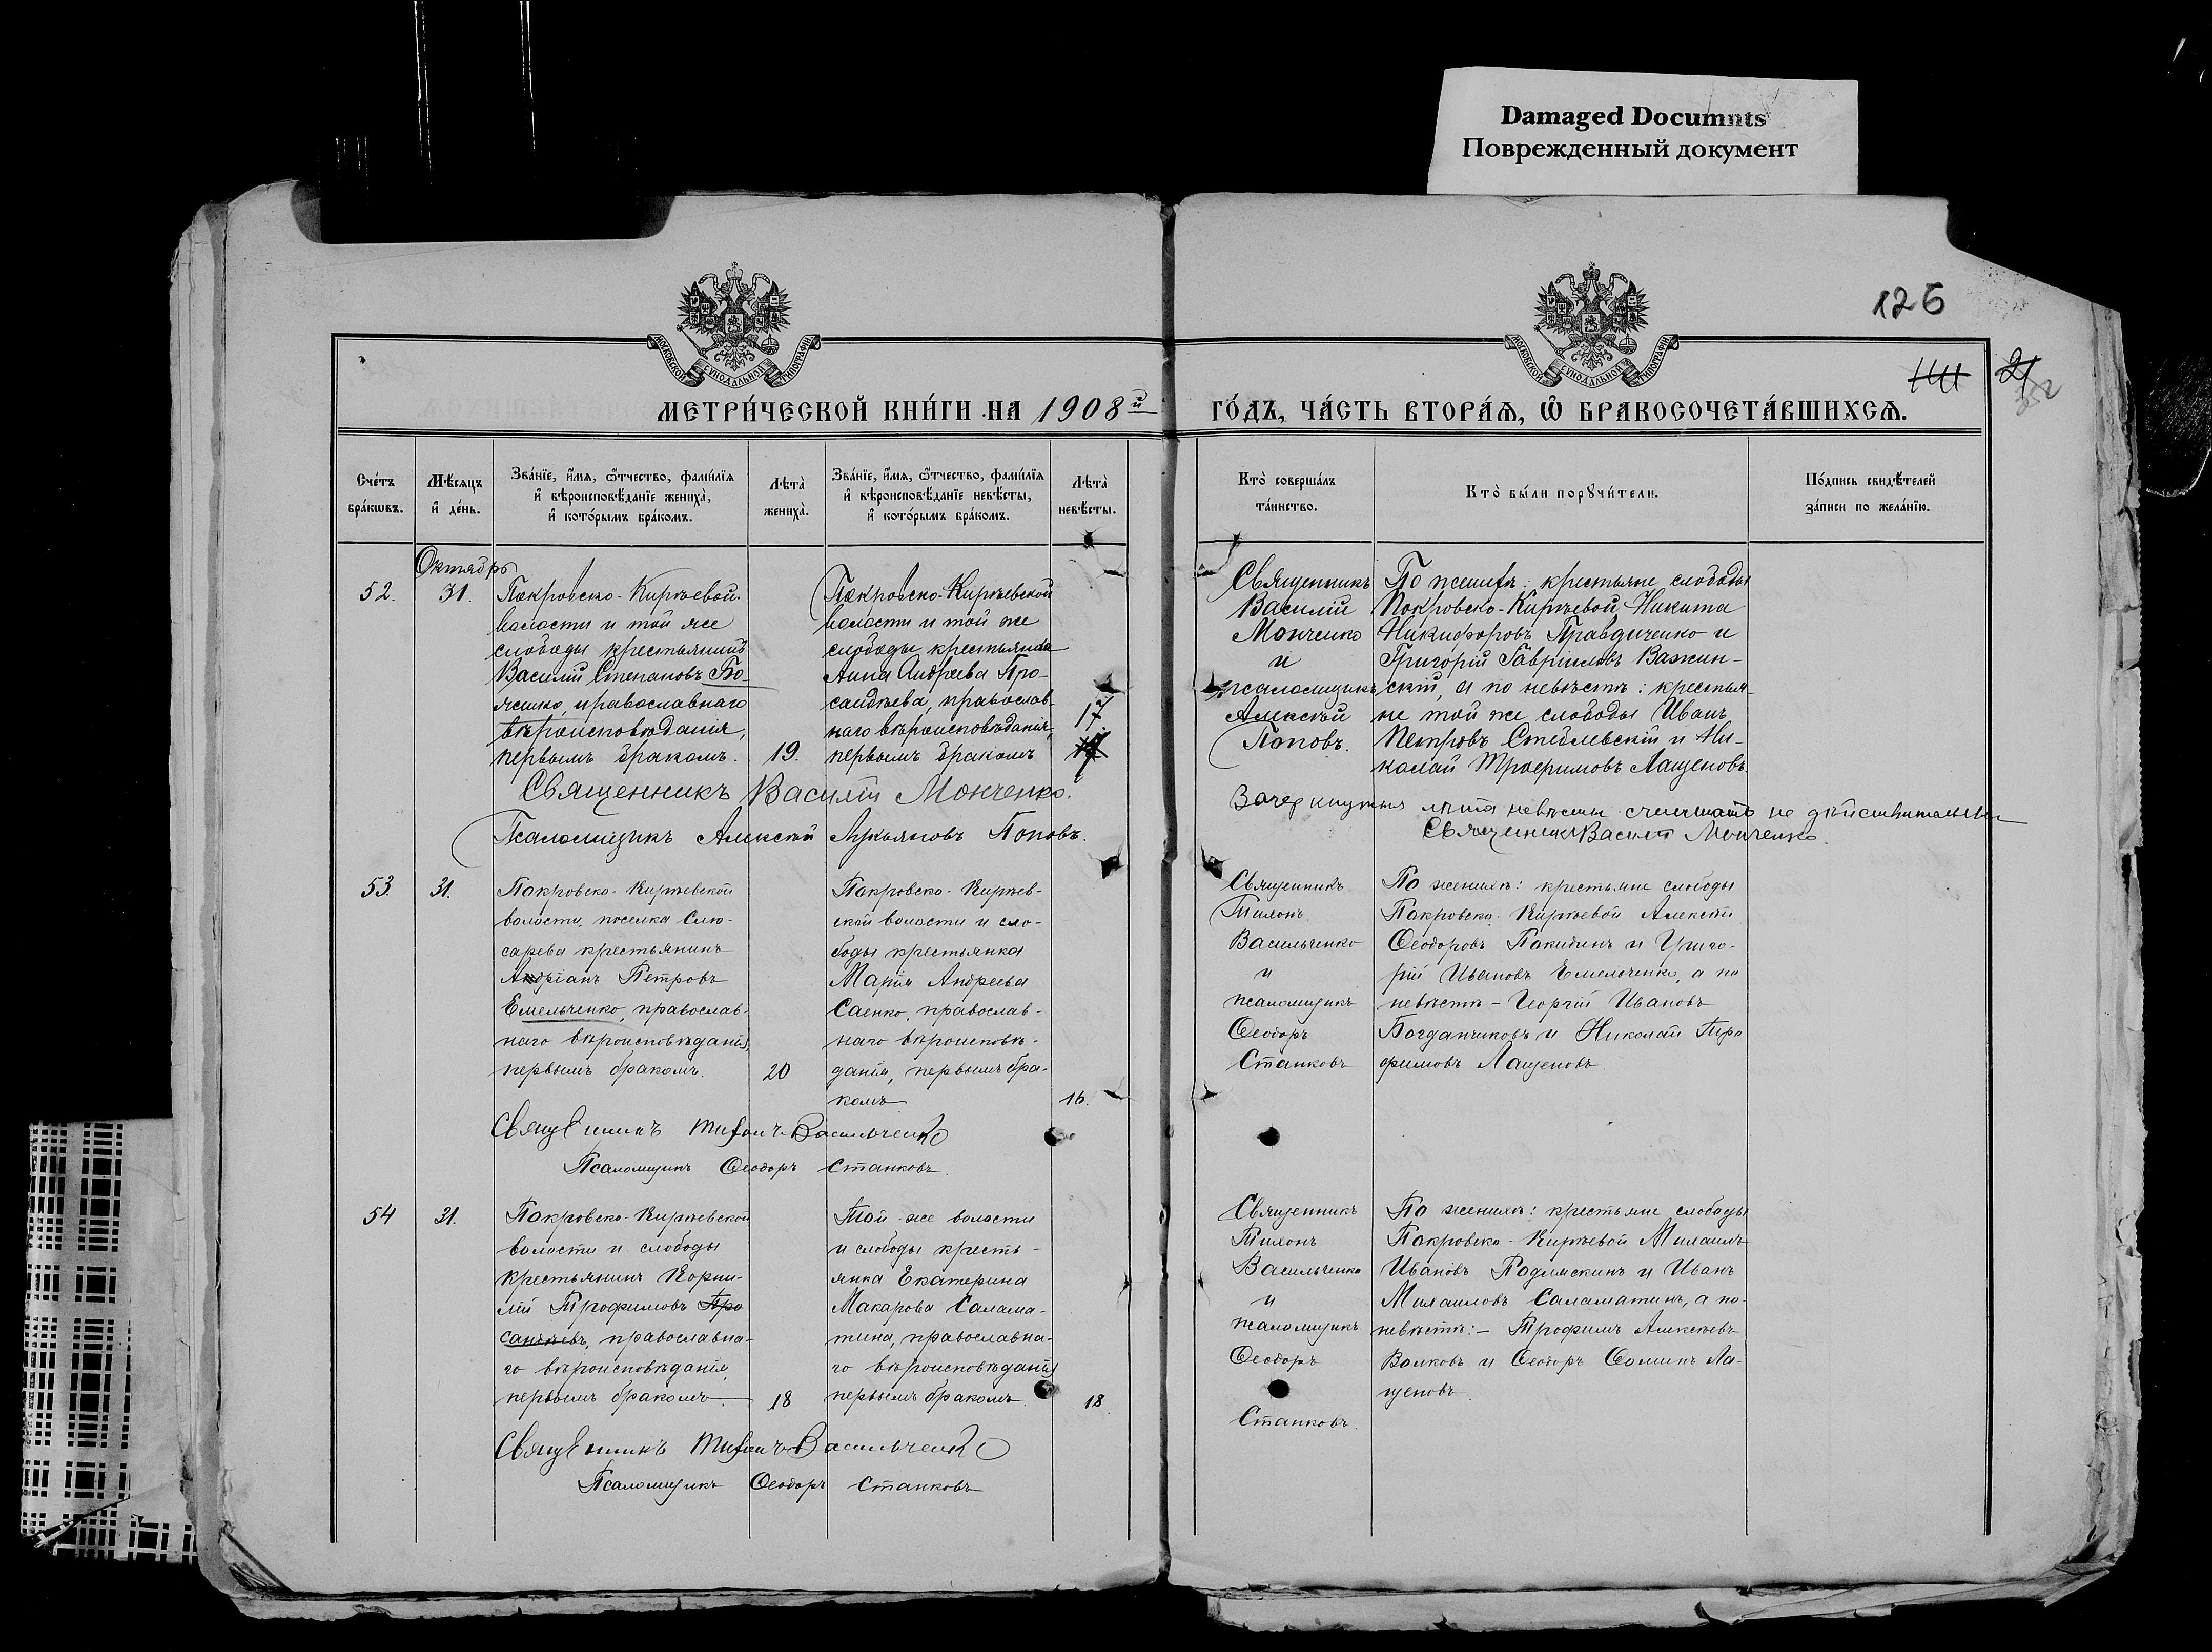 Damaged Documnts
Поврежденный документ
126
МОСКОВСКОЙ СѴНОДАЛЬНОЙ ТИПОГРАФІИ
МОСКОВСКОЙ СѴНОДАЛЬНОЙ ТИПОГРАФІИ
МЕТРИ́ЧЕСКОЙ КНИ́ГИ НА 1908й ГО́ДЪ, ЧА́СТЬ ВТОРА́Ѧ, Ѡ҆ БРАКОСОЧЕТА́ВШИХСѦ.
Сче́тъ
бра́кѡвъ.
Мѣ́сѧцъ
и҆ де́нь.
Зва́нїе, и҆́мѧ, ѻ҆́тчество, фами́лїѧ
и҆ вѣроисповѣ́данїе жениха̀,
и҆ кото́рымъ бра́комъ.
Лѣ́та̀
жениха̀.
Зва́нїе, и҆́мѧ, ѻ҆́тчество, фами́лїѧ
и҆ вѣроисповѣ́данїе невѣ́сты,
и҆ кото́рымъ бра́комъ.
Лѣ́та̀
невѣ́сты.
Кто̀ соверша́лъ
та́инство.
Кто̀ бы́ли порꙋчи́тели.
По́дпись свидѣ́телей
за́писи по жела́нїю.
Октябрь
52.
31.
Покровско-Кирѣевой
волости и той же
слободы крестьянинъ
Василій Степановъ Бо-
женко, православнаго
вѣроисповѣданія,
первымъ бракомъ.
19.
Покровско-Кирѣевской
волости и той же
слободы крестьянка
Анна Андреева Про-
санѣева, православ-
наго вѣроисповѣданія,
первымъ бракомъ
17
Священникъ
Василій
Монченко
и
псаломщикъ
Алексѣй
Поповъ.
По женихѣ: крестьяне слободы
Покровско-Кирѣевой Никита
Никифоровъ Правдиченко и
Григорій Гавріиловъ Важин-
скій, а по невѣстѣ: крестья-
не той же слободы Иванъ
Петровъ Стеблевскій и Ни-
колай Трофимовъ Лащеновъ.
Священникъ Василій Монченко.
Псаломщикъ Алексѣй Лукьяновъ Поповъ.
Зачеркнутыя лѣта невѣсты считать не дѣйствительны
Священникъ Василій Монченко.
53.
31.
Покровско-Кирѣевской
волости, поселка Слю-
сарева крестьянинъ
Андріанъ Петровъ
Емельченко, православ-
наго вѣроисповѣданія,
первымъ бракомъ.
20
Покровско-Кирѣев-
ской волости и сло-
боды крестьянка
Марія Андреева
Саенко, православ-
наго вѣроисповѣ-
данія, первымъ бра-
комъ
16.
Священникъ
Тихонъ
Васильченко
и
псаломщикъ
Ѳеодоръ
Станковъ
По женихѣ: крестьяне слободы
Покровско-Кирѣевой Алексѣй
Ѳеодоровъ Пакидинъ и Григо-
рій Ивановъ Емельченко, а по
невѣстѣ - Георгій Ивановъ
Богданчиковъ и Николай Тро
фимовъ Лащеновъ.
Священникъ Тихонъ Васильченко
Псаломщикъ Ѳеодоръ Станковъ.
54
31.
Покровско-Кирѣевской
волости и слободы
крестьянинъ Корни-
лій Трофимовъ Про
санѣевъ, православна-
го вѣроисповѣданія,
первымъ бракомъ.
18
Той же волости
и слободы кресть-
янка Екатерина
Макарова Салама-
тина, православна-
го вѣроисповѣданія
первымъ бракомъ.
18.
Священникъ
Тихонъ
Васильченко
и
псаломщикъ
Ѳеодоръ
Станковъ.
По женихѣ: крестьяне слободы
Покровско-Кирѣевой Михаилъ
Ивановъ и Иванъ
Михаиловъ Саламатинъ, а по
невѣстѣ:- Трофимъ Алексѣевъ
Волковъ и Ѳеодоръ Ѳоминъ Ла-
щеновъ.
Священникъ Тихонъ Васильченко
Псаломщикъ Ѳеодоръ Станковъ